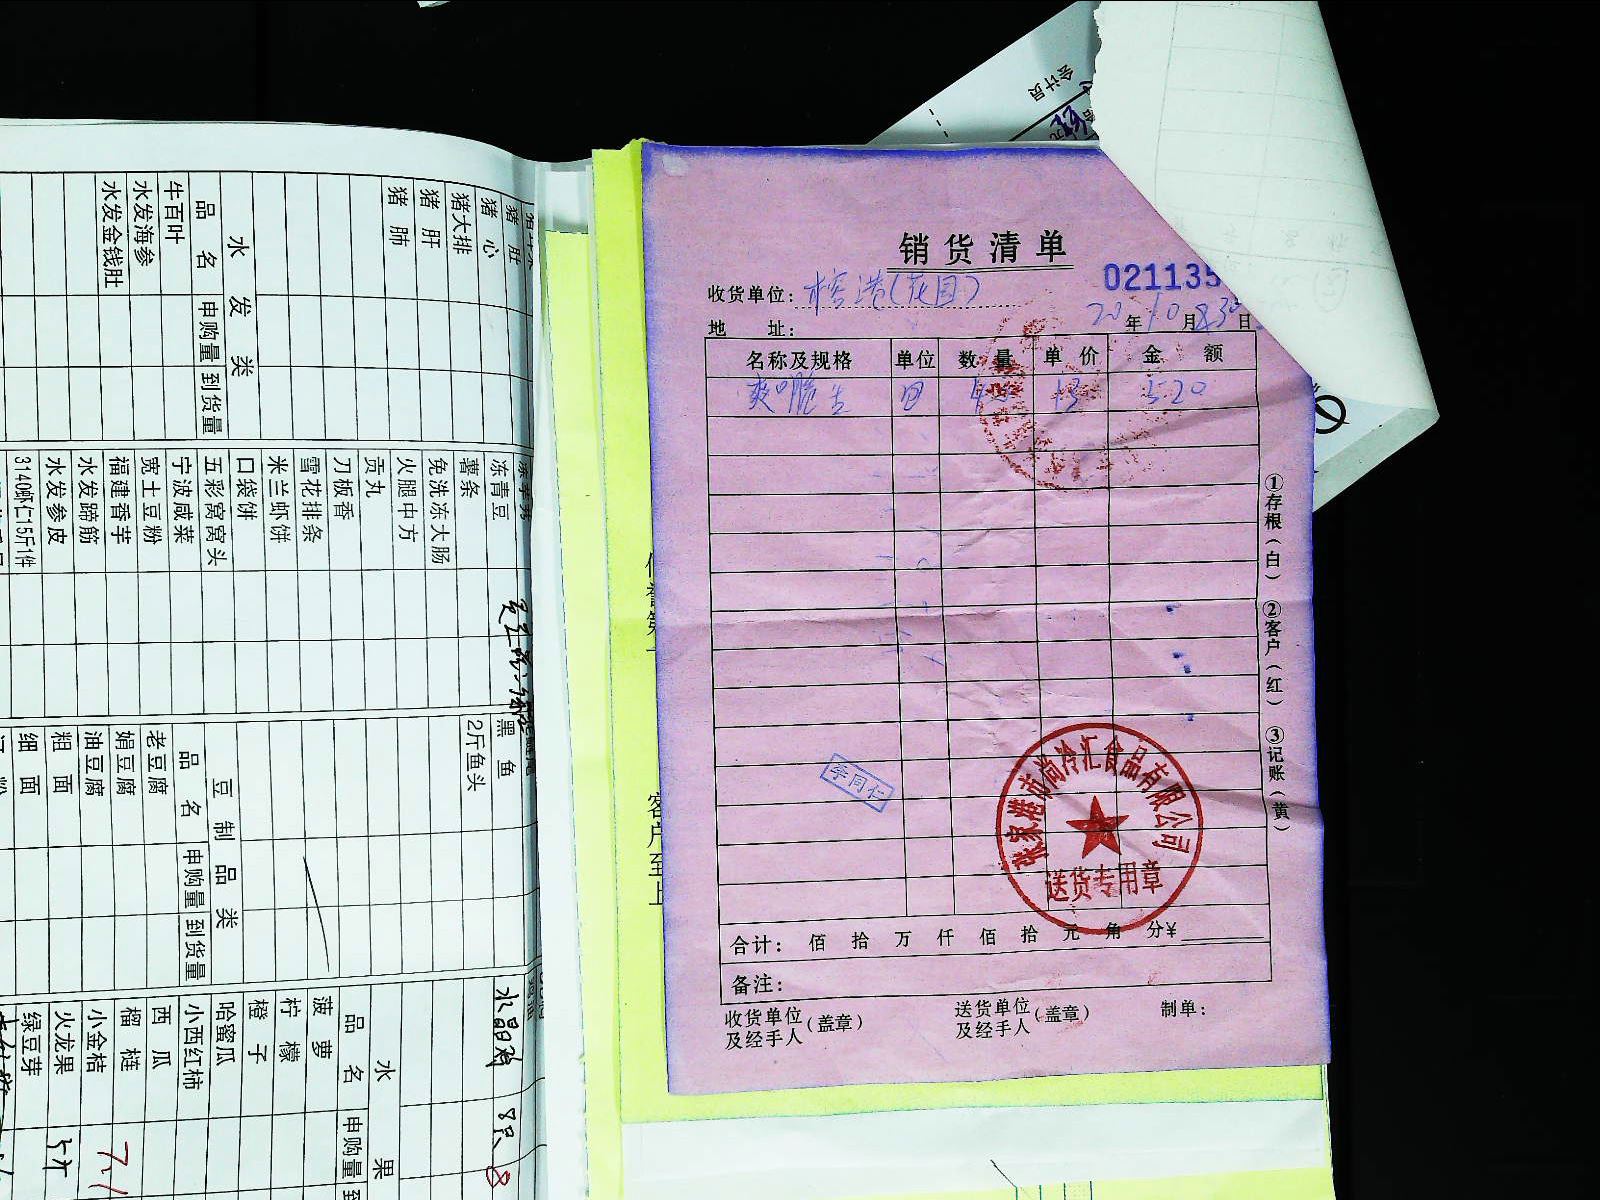 销货清单
021135
收货单位:
地 址:
20 年 10 月 30 日
名称及规格 单位 数量 单价 金额
13 520
合计: 佰 拾 万 仟 佰 拾 元 角 分¥
备注:
收货单位及经手人(盖章) 送货单位及经手人(盖章) 制单:
①存根(白) ②客户(红) ③记账(黄)
李同仁
张家港市尚冷汇食品有限公司
送货专用章
会计员
客户至上
猪肚
猪心
猪大排
猪肝
猪肺
水发类
品名 申购量 到货量
牛百叶
水发海参
水发金钱肚
冻青豆
薯条
免洗冻大肠
火腿中方
贡丸
刀板香
雪花排条
米兰虾饼
口袋饼
五彩窝窝头
宁波咸菜
宽土豆粉
福建香芋
水发蹄筋
水发参皮
3140虾仁15斤1件
黑鱼
2斤鱼头
豆制品类
品名 申购量 到货量
老豆腐
娟豆腐
油豆腐
粗面
细面
8只 8
水果
品名 申购量
菠萝
柠檬
橙子
哈蜜瓜
小西红柿
西瓜
榴梿
小金桔
火龙果
绿豆芽